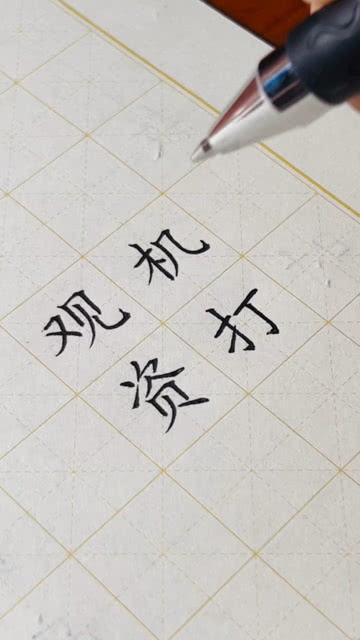 观机
资打